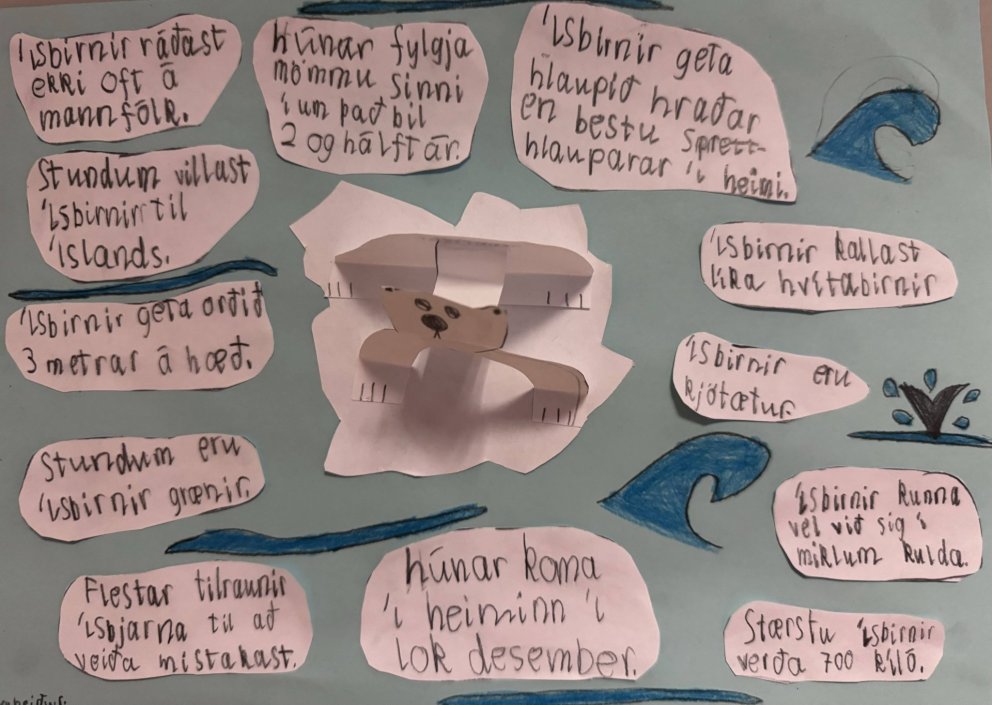 Ísbirnir ráðast
ekki oft á
mannfólk.
Húnar fylgja
mömmu sinni
í um það bil
2 og hálft ár.
Ísbirnir geta
hlaupið hraðar
en bestu sprett-
hlauparar í heimi.
Stundum villast
ísbirnir til
íslands.
Ísbirnir kallast
líka hvítabirnir
Ísbirnir geta orðið
3 metrar á hæð.
Ísbirnir eru
kjötætur.
Stundum eru
ísbirnir grænir.
Ísbirnir kunna
vel við sig í
miklum kulda.
Flestar tilraunir
ísbjarna til að
veiða mistakast.
Húnar koma
í heiminn í
lok desember.
Stærstu ísbirnir
verða 700 kíló.